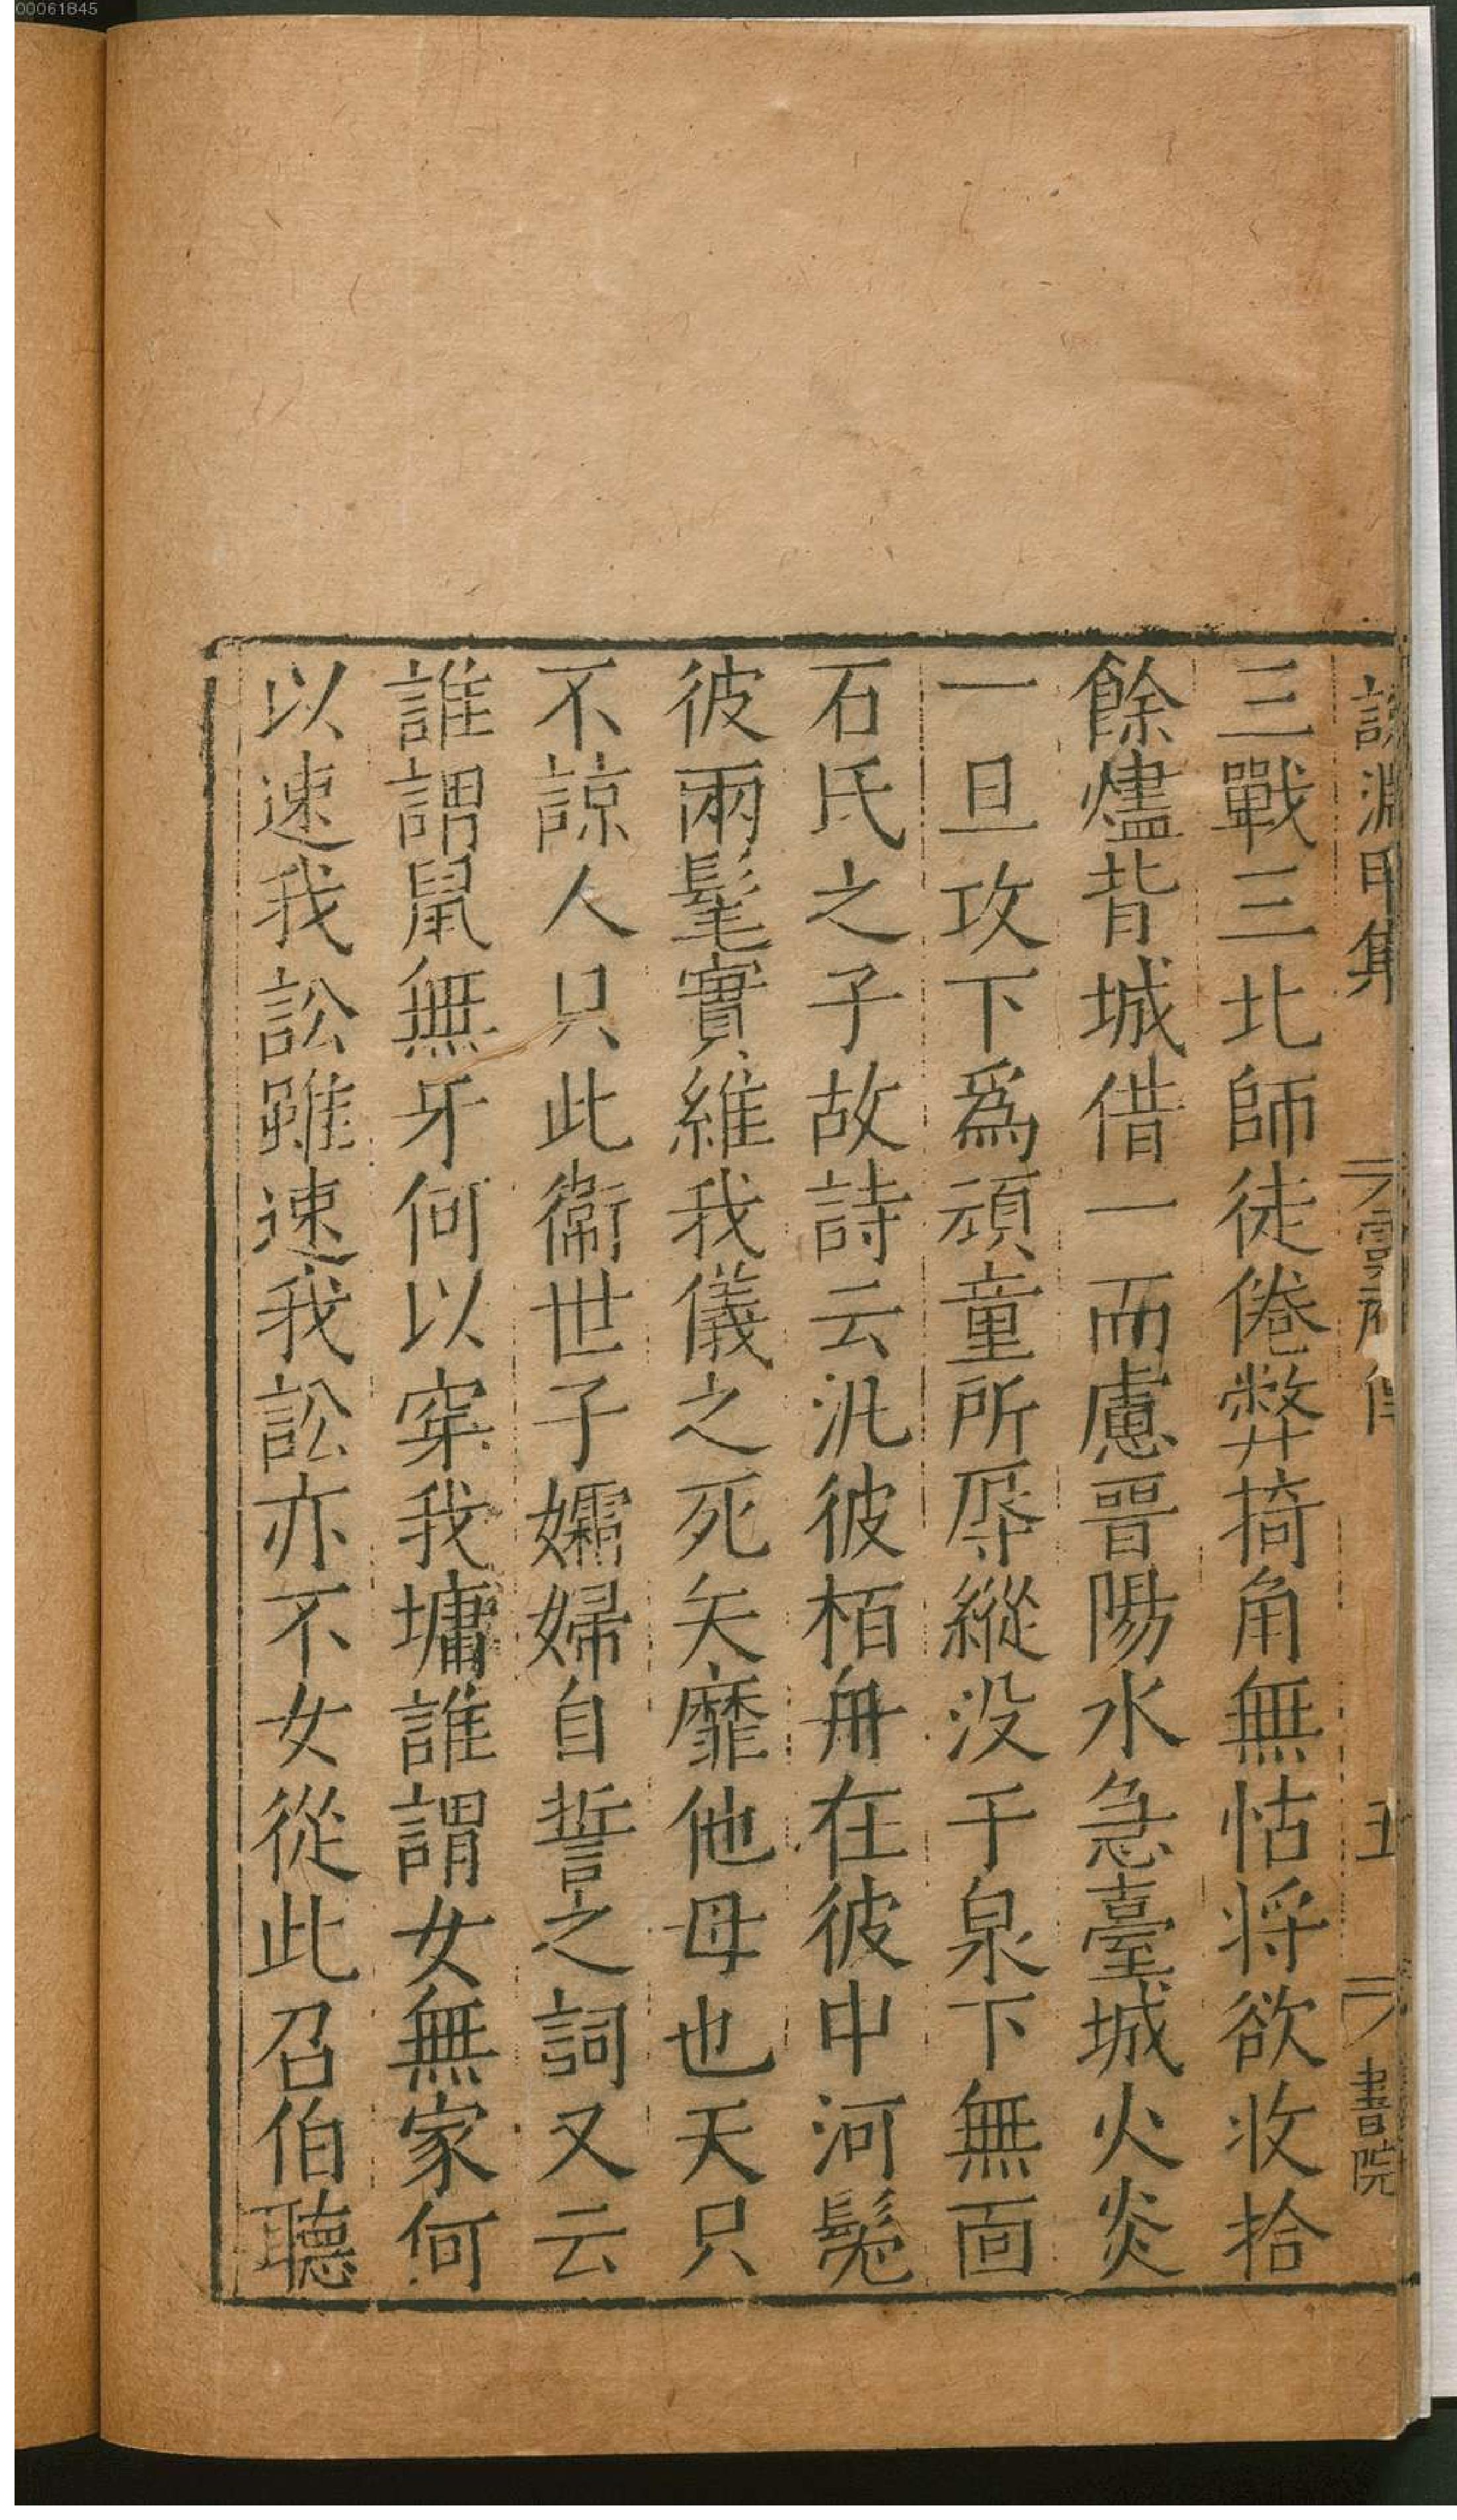 三戰三北師徒倦弊掎角無怙将欲收拾
餘燼背城借一而慮晉陽水急臺城火炎
一旦攻下爲頑童所辱縱没于泉下無面
石氏之子故詩云汎彼栢舟在彼中河髧
彼兩髦實維我儀之死矢靡他母也天只
不諒人只此衞世子孀婦自誓之詞又云
誰謂鼠無牙何以穿我墉誰謂女無家何
以速我訟雖速我訟亦不女從此召伯聽
集
五
書院
00061845